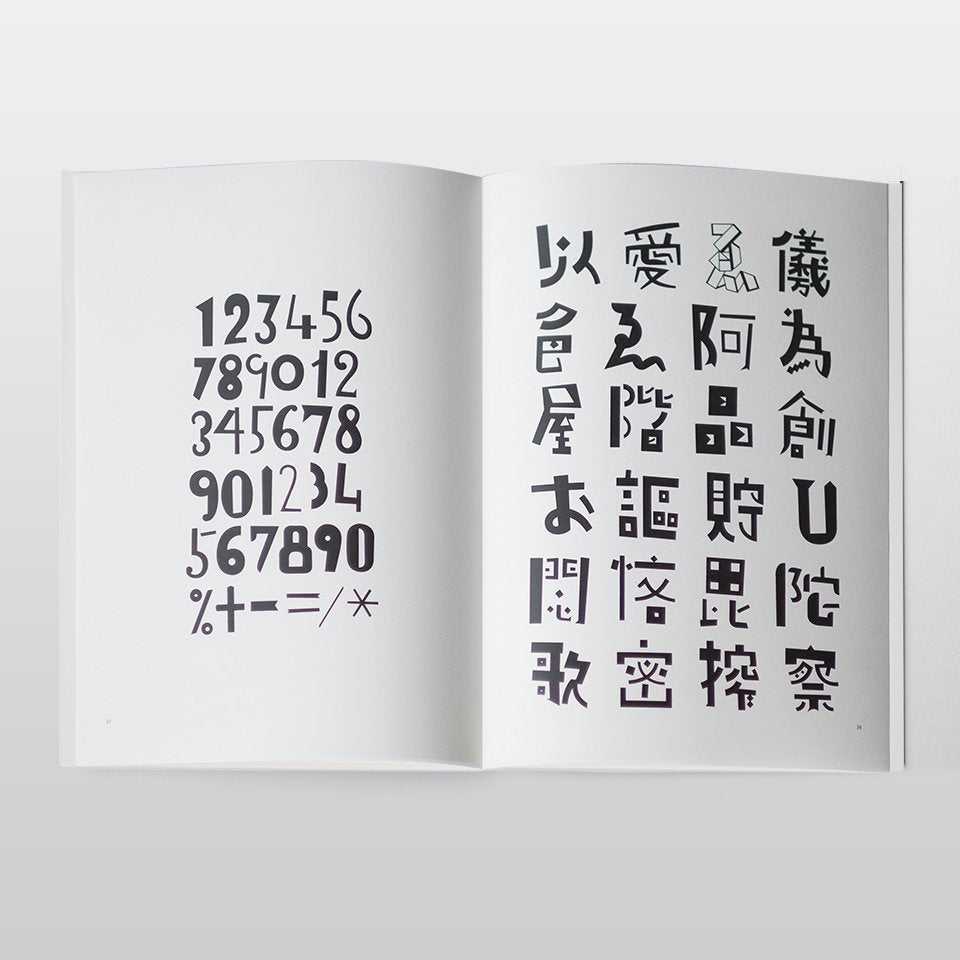 123456
789012
345678
901234
567890
%+-=/*
27
以愛ゑ儀
色ゑ阿為
屋階品創
お謳貯U
悶悋毘陀
歌密搾察
26